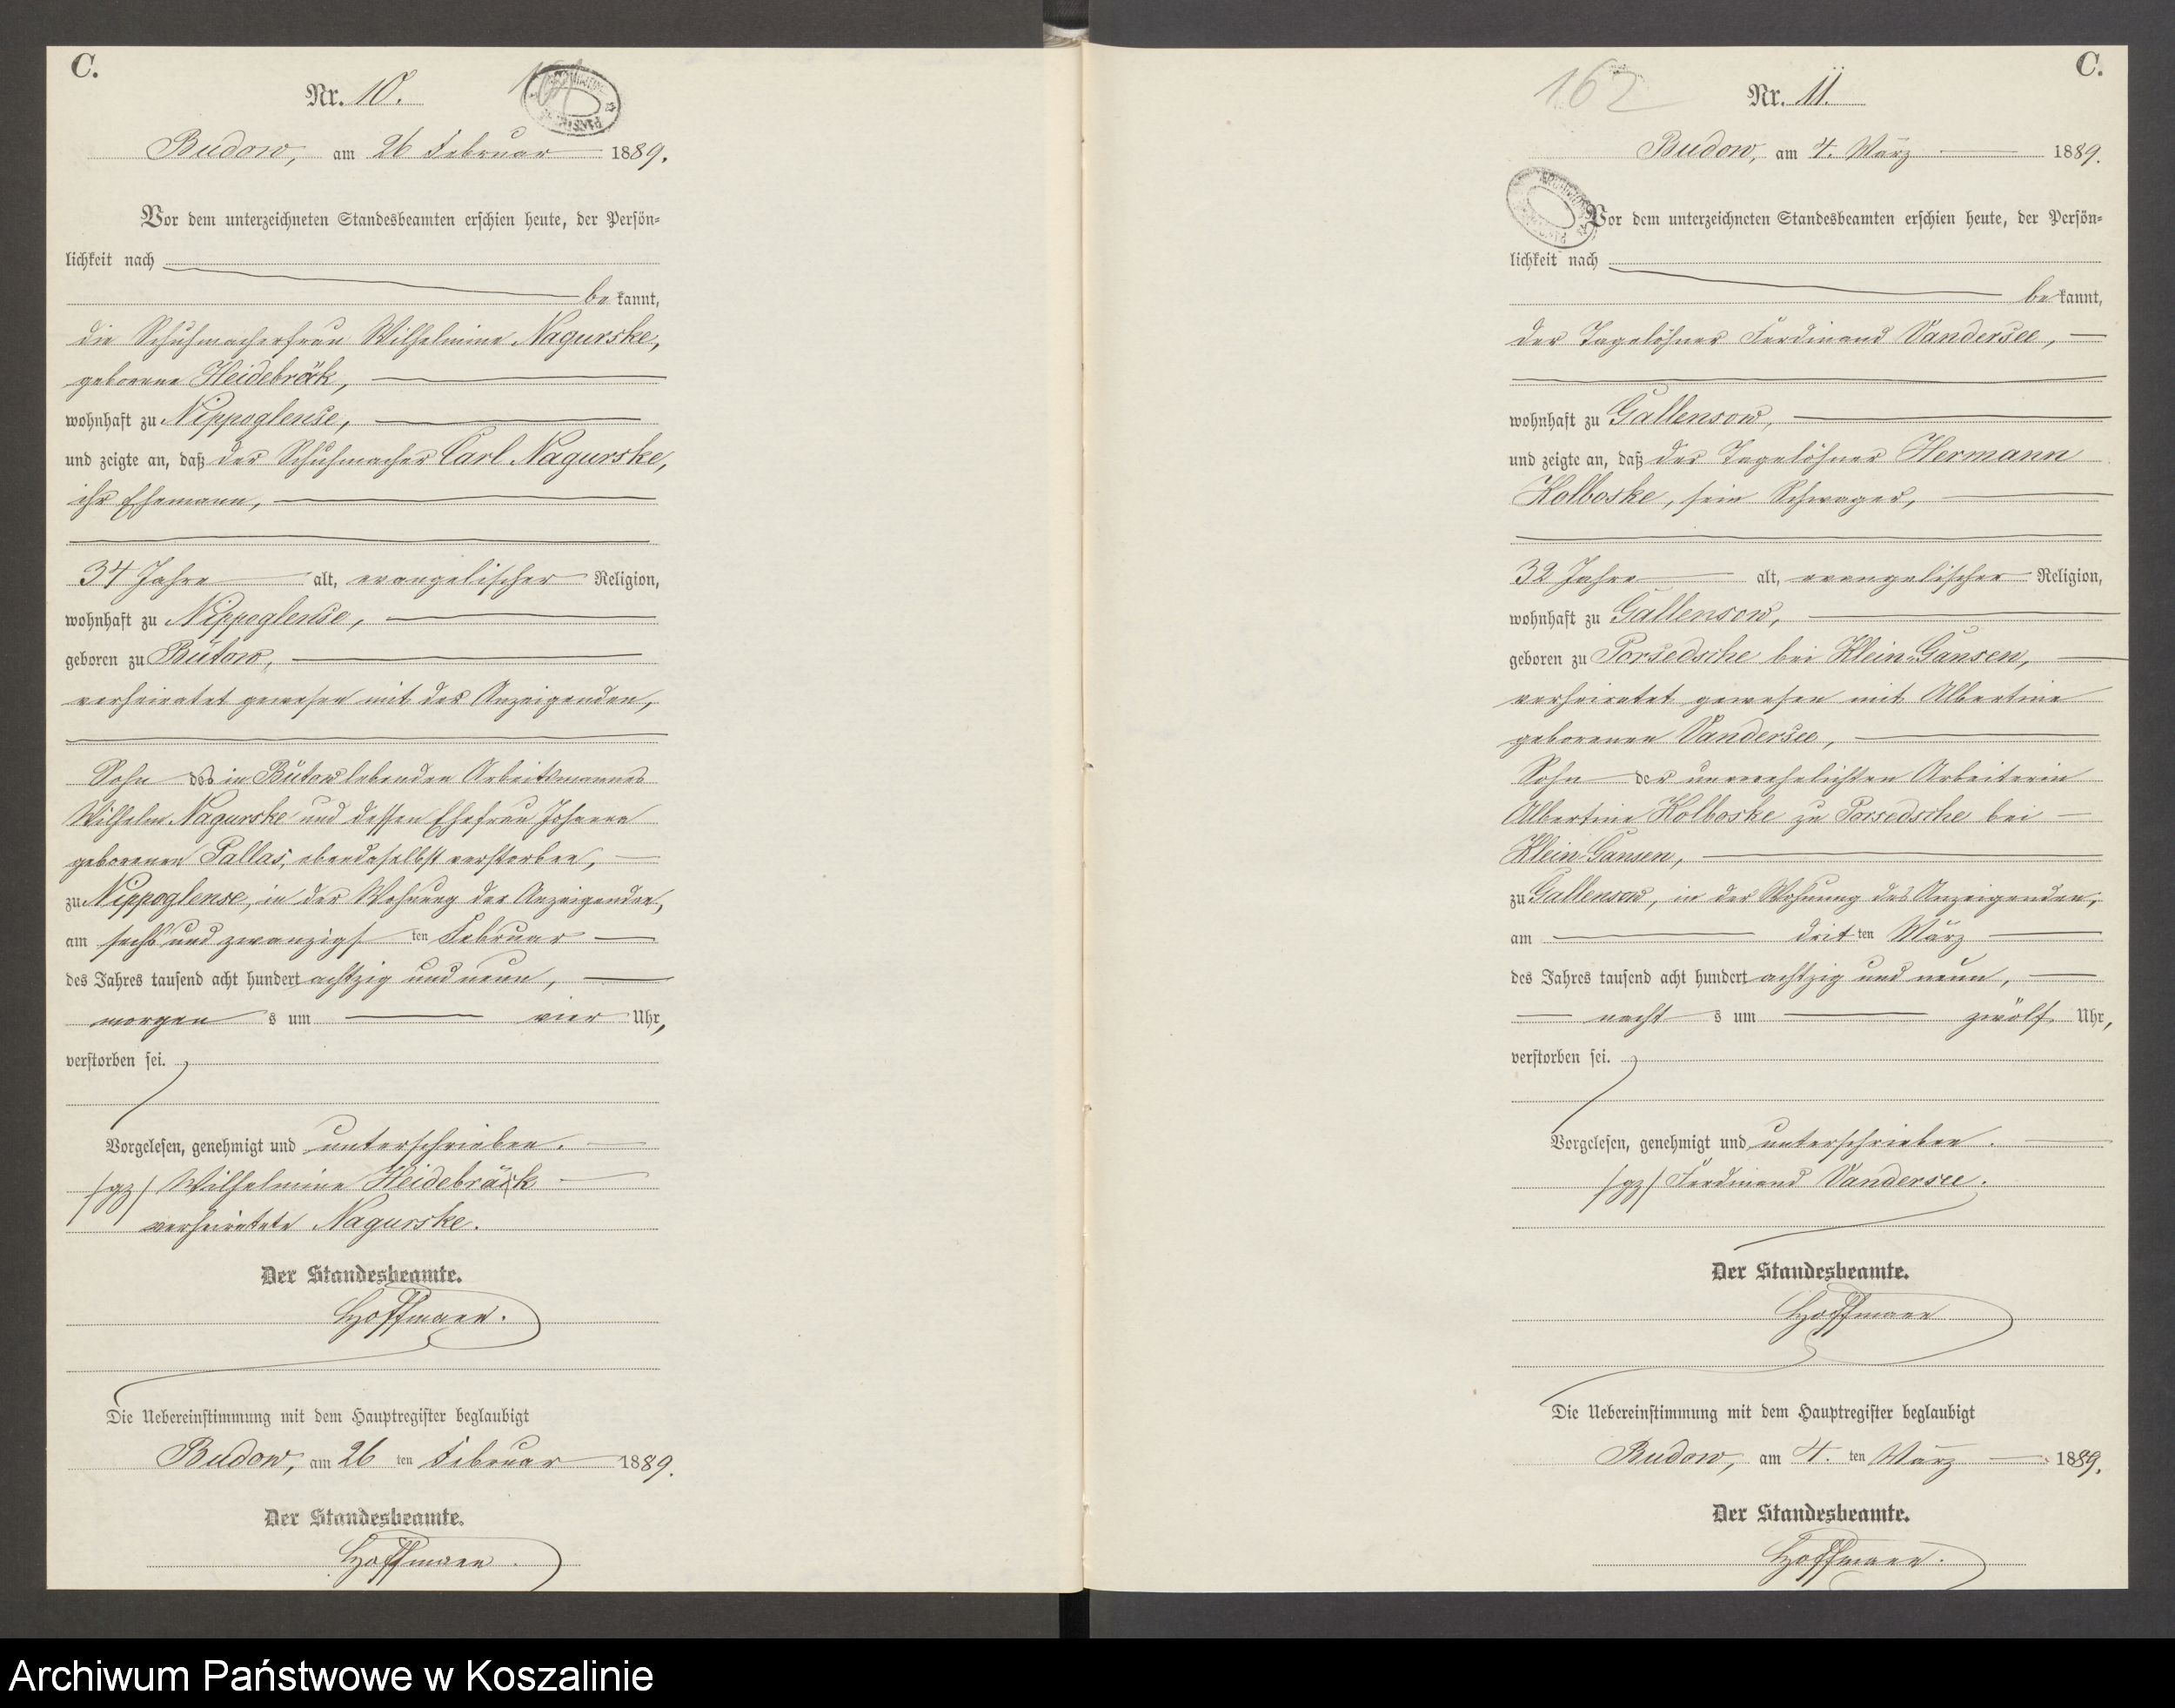 C.
Nr. 10.
Budow, am 26 Februar 1889.
Vor dem unterzeichneten Standesbeamten erschien heute, der Persön-
lichkeit nach
be kannt,
die Schuhmacherfrau Wilhelmine Nagurske,
geborene Heidebräck,
wohnhaft zu Nippoglense,
und zeigte an, daß der Schuhmacher Carl Nagurske,
ihr Ehemann,
34 Jahre alt, evangelischer Religion,
wohnhaft zu Nippoglense,
geboren zu Bütow,
verheiratet gewesen mit der Anzeigenden,
Sohn des in Bütow lebenden Arbeitsmannes
Wilhelm Nagurske und dessen Ehefrau Johanne
geborenen Pallas, ebendaselbst verstorben,
zu Nippoglense, in der Wohnung der Anzeigenden,
am sechs und zwanzigs ten Februar
des Jahres tausend acht hundert achtzig und neun,
morgen s um vier Uhr,
verstorben sei.
Vorgelesen, genehmigt und unterschrieben.
/gz/ Wilhelmine Heidebräck
verheiratete Nagurske.
Der Standesbeamte.
Hoffmann.
Die Uebereinstimmung mit dem Hauptregister beglaubigt
Budow, am 26 ten Februar 1889.
Der Standesbeamte.
Hoffmann.
C.
162
Nr. 11.
Budow, am 4. März 1889.
Vor dem unterzeichneten Standesbeamten erschien heute, der Persön-
lichkeit nach
be kannt,
der Tagelöhner Ferdinand Vandersee,
wohnhaft zu Gallensow,
und zeigte an, daß der Tagelöhner Hermann
Kolboske, sein Schwager,
32 Jahre alt, evangelischer Religion,
wohnhaft zu Gallensow,
geboren zu Porsedsche bei Klein-Gansen,
verheiratet gewesen mit Albertine
geborenen Vandersee,
Sohn der unverehelichten Arbeiterin
Albertine Kolboske zu Porsedsche bei
Klein-Gansen,
zu Gallensow, in der Wohnung des Anzeigenden,
am drit ten März
des Jahres tausend acht hundert achtzig und neun,
nacht s um zwölf Uhr,
verstorben sei.
Vorgelesen, genehmigt und unterschrieben.
/gz/ Ferdinand Vandersee.
Der Standesbeamte.
Hoffmann
Die Uebereinstimmung mit dem Hauptregister beglaubigt
Budow, am 4. ten März 1889.
Der Standesbeamte.
Hoffmann.
Archiwum Państwowe w Koszalinie